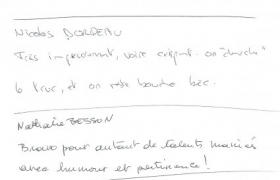 Nicolas DORDEAU
Très impressionnant, voire crispant. on "cherche"
le truc, et on reste bouche bée.
Nathalie BESSON
Bravo pour autant de talents maniés
avec humour et pertinence !